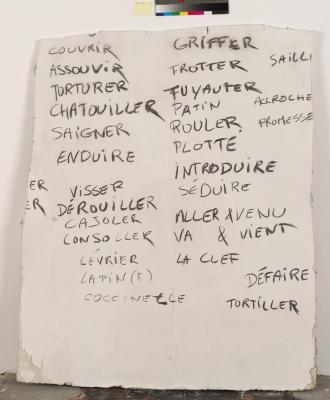 COUVRIR
ASSOUVIR
TORTURER
CHATOUILLER
SAIGNER
ENDUIRE
ER
ER
VISSER
DÉROUILLER
CAJOLER
CONSOLLER
LÉVRIER
LAPIN(E)
COCCINELLE
GRIFFER
FROTTER
TUYAUTER
PATIN
ROULER
PLOTTE
INTRODUIRE
SÉDUIRE
ALLER & VENU
VA & VIENT
LA CLEF
DÉFAIRE
TORTILLER
SAILLI
ACCROCHE
PROMESSE